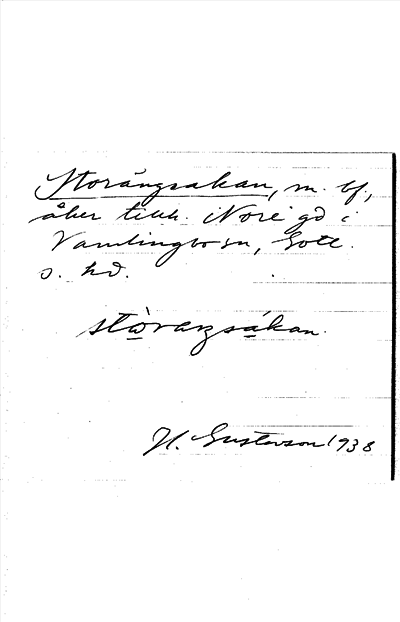 Storängsakan, m. bf.,
åker tillh. Nore gd i
Vamlingbo sn, Gotl.
s. hd.
stòrangsákan.
H. Gustavson 1938